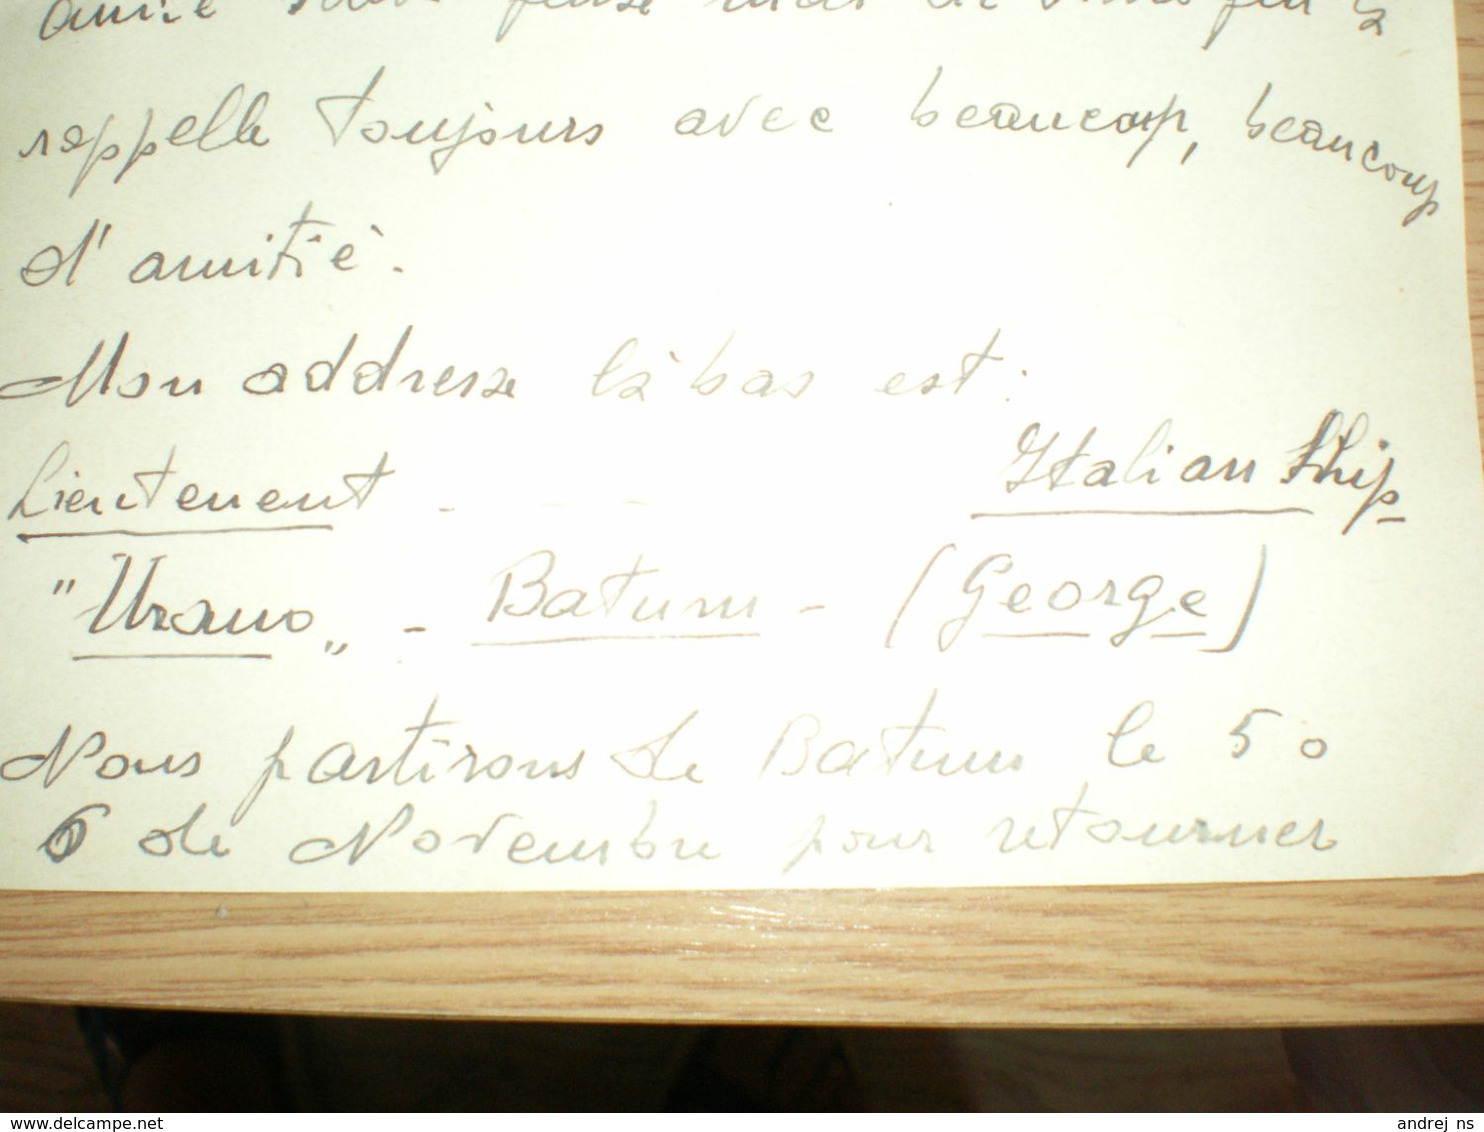 rappelle toujours avec beaucoup, beaucoup
d'amitiè.
Mon addresse là bas est:
Lieutenent - Italian Ship -
"Urano„ - Batum - (George)
Nous partirons de Batum le 5 o
6 de Novembre pour retourner
andrej ns